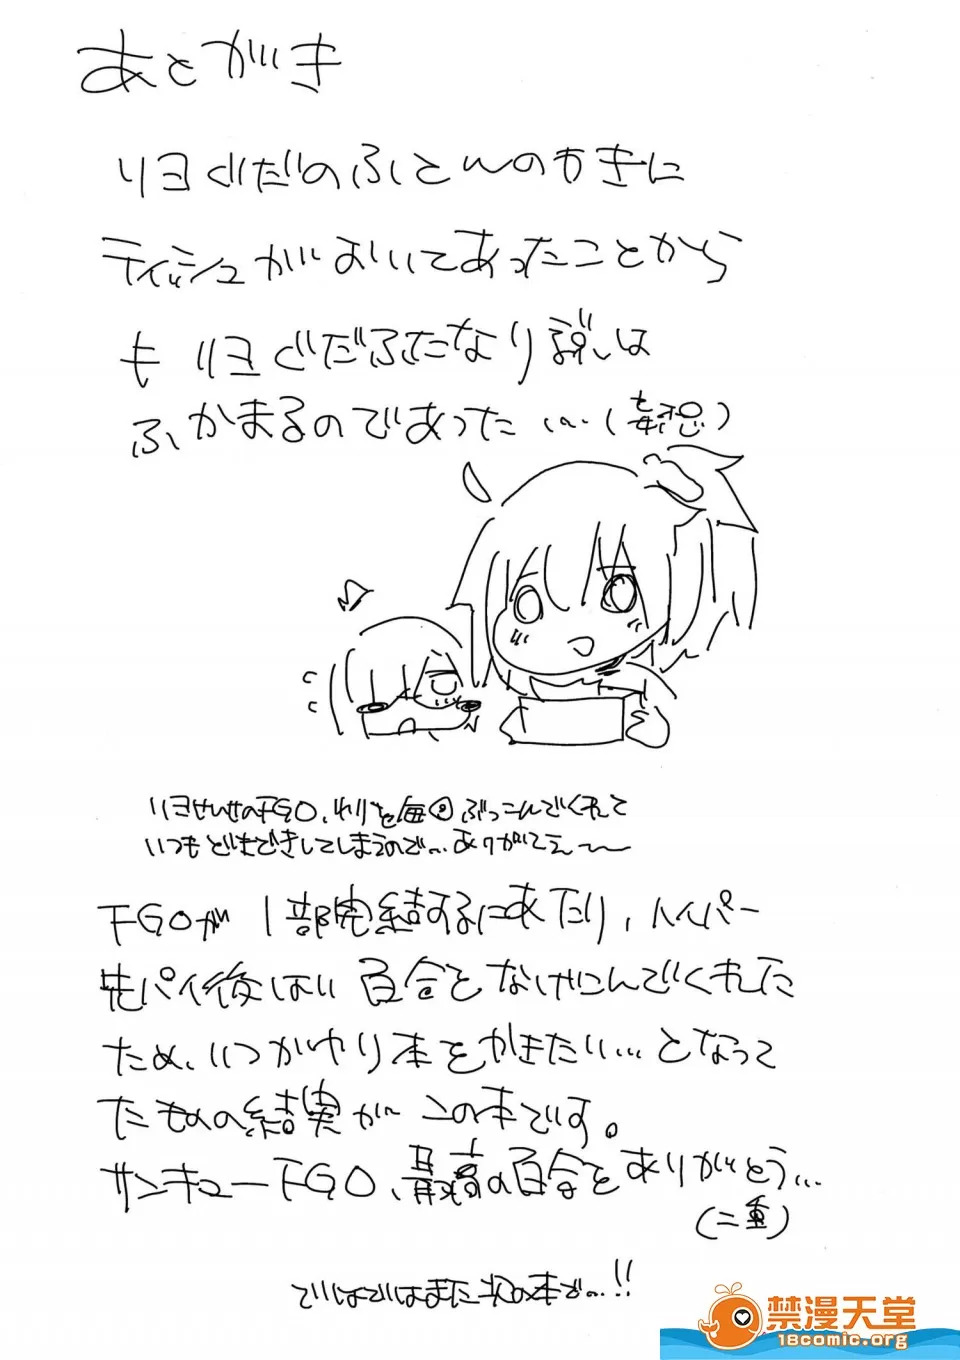 あとがき
リヨぐだのふとんのわきに
ティッシュがおいてあったことから
も リヨぐだふたなり説は
ふかまるのであった…(妄想)
リヨせんせのFGO、わりと毎回ぶっこんでくれて
いつもどきどきしてしまうので… ありがてえ〜〜
FGOが1部完結するにあたり、ハイパー
先パイ後はい百合をなげこんでくれた
ため、いつかやり本をかきたい…となって
たものの結実がこの本です。
サンキューFGO、最高の百合をありがとう…
(二重)
ではではまた次の本で…!!
禁漫天堂
18comic.org